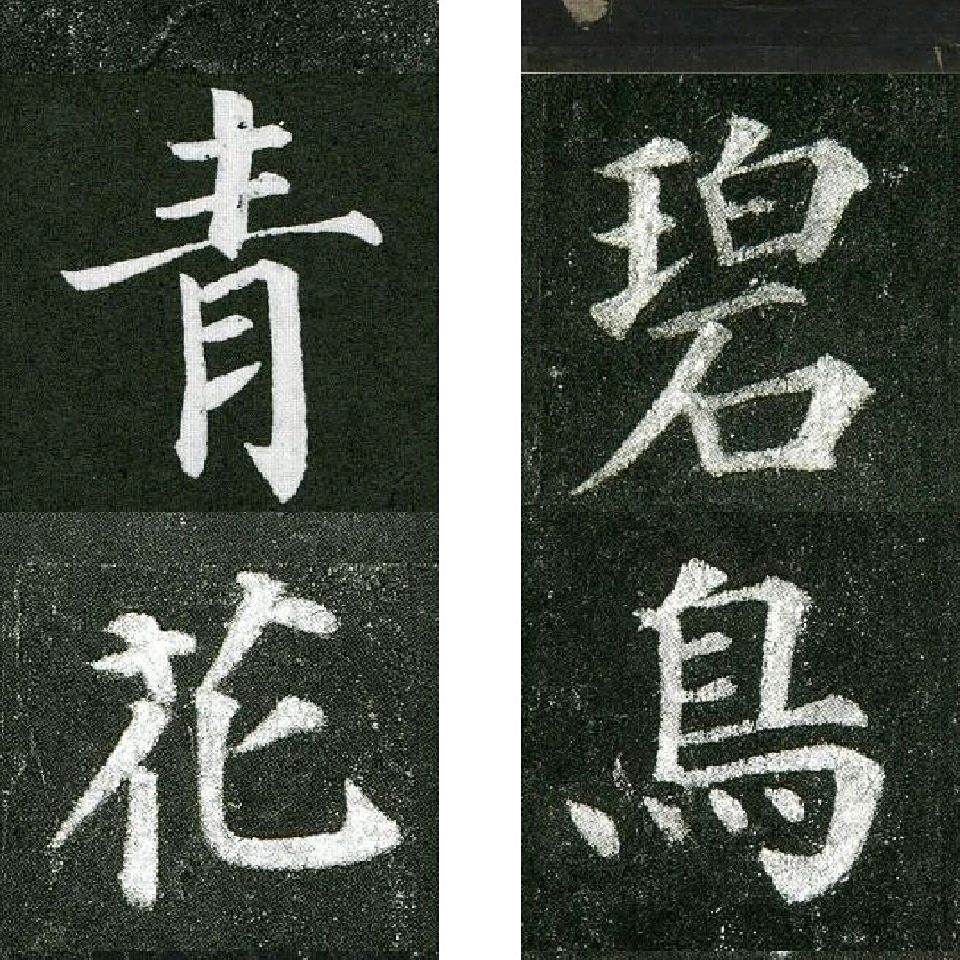 碧鳥
青花